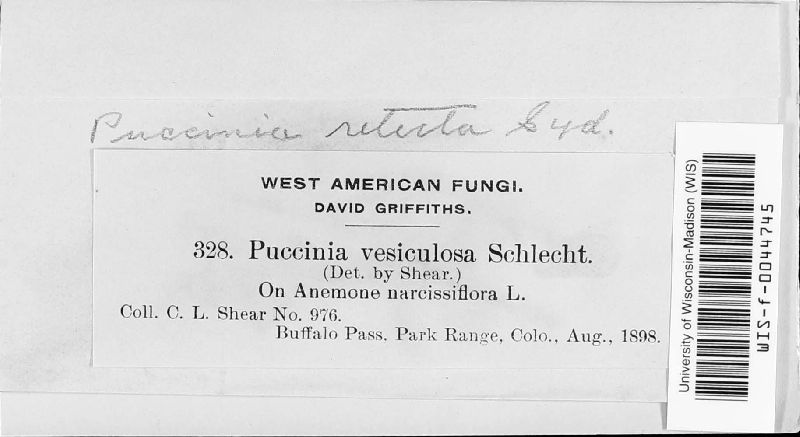 Puccinia retecta Syd.
WEST AMERICAN FUNGI.
DAVID GRIFFITHS.
328. Puccinia vesiculosa Schlecht.
(Det. by Shear.)
On Anemone narcissiflora L.
Coll. C. L. Shear No. 976.
Buffalo Pass, Park Range, Colo., Aug., 1898.
University of Wisconsin-Madison (WIS)
WIS-f-0044745